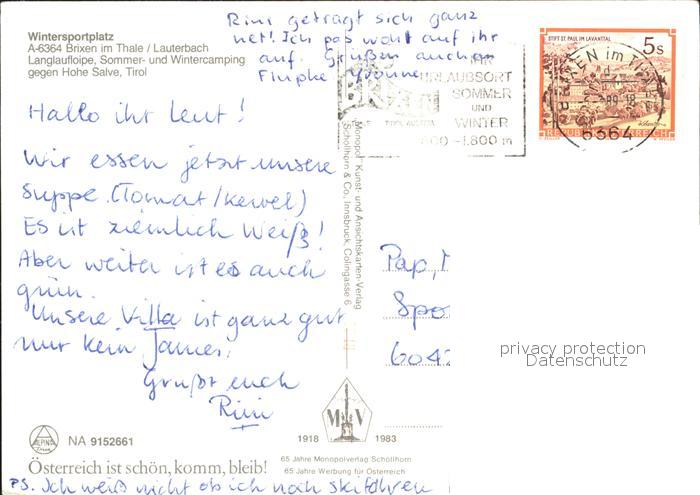 Wintersportplatz
A-6364 Brixen im Thale / Lauterbach
Langlaufloipe, Sommer- und Wintercamping
gegen Hohe Salve, Tirol
Rini getragt sich ganz
net! Ich pas wohl auf ihr
auf. Grüßen auch an
Flupke Yvonne
Hallo ihr Leut!
Wir essen jetzt unsere
Suppe. (Tomat/Kervel)
Es ist ziemlich Weiß!
Aber weiter ist es auch
grün.
Unsere Villa ist ganz gut
nur kein James.
Grußt euch
Rini
PS. Ich weiß nicht ob ich noch skifahren
NA 9152661
Österreich ist schön, komm, bleib!
Monopol Kunst- und Ansichtskarten-Verlag
Schöllhorn & Co., Innsbruck, Colingasse 6
M V
1918 1983
65 Jahre Monopolverlag Schöllhorn
65 Jahre Werbung für Österreich
IHR
URLAUBSORT
SOMMER
UND
WINTER
800 - 1.800 m
STIFT ST. PAUL IM LAVANTTAL
5s
REPUBLIK ÖSTERREICH
BRIXEN im THALE
6364
Pap,
Spo
6042
privacy protection
Datenschutz